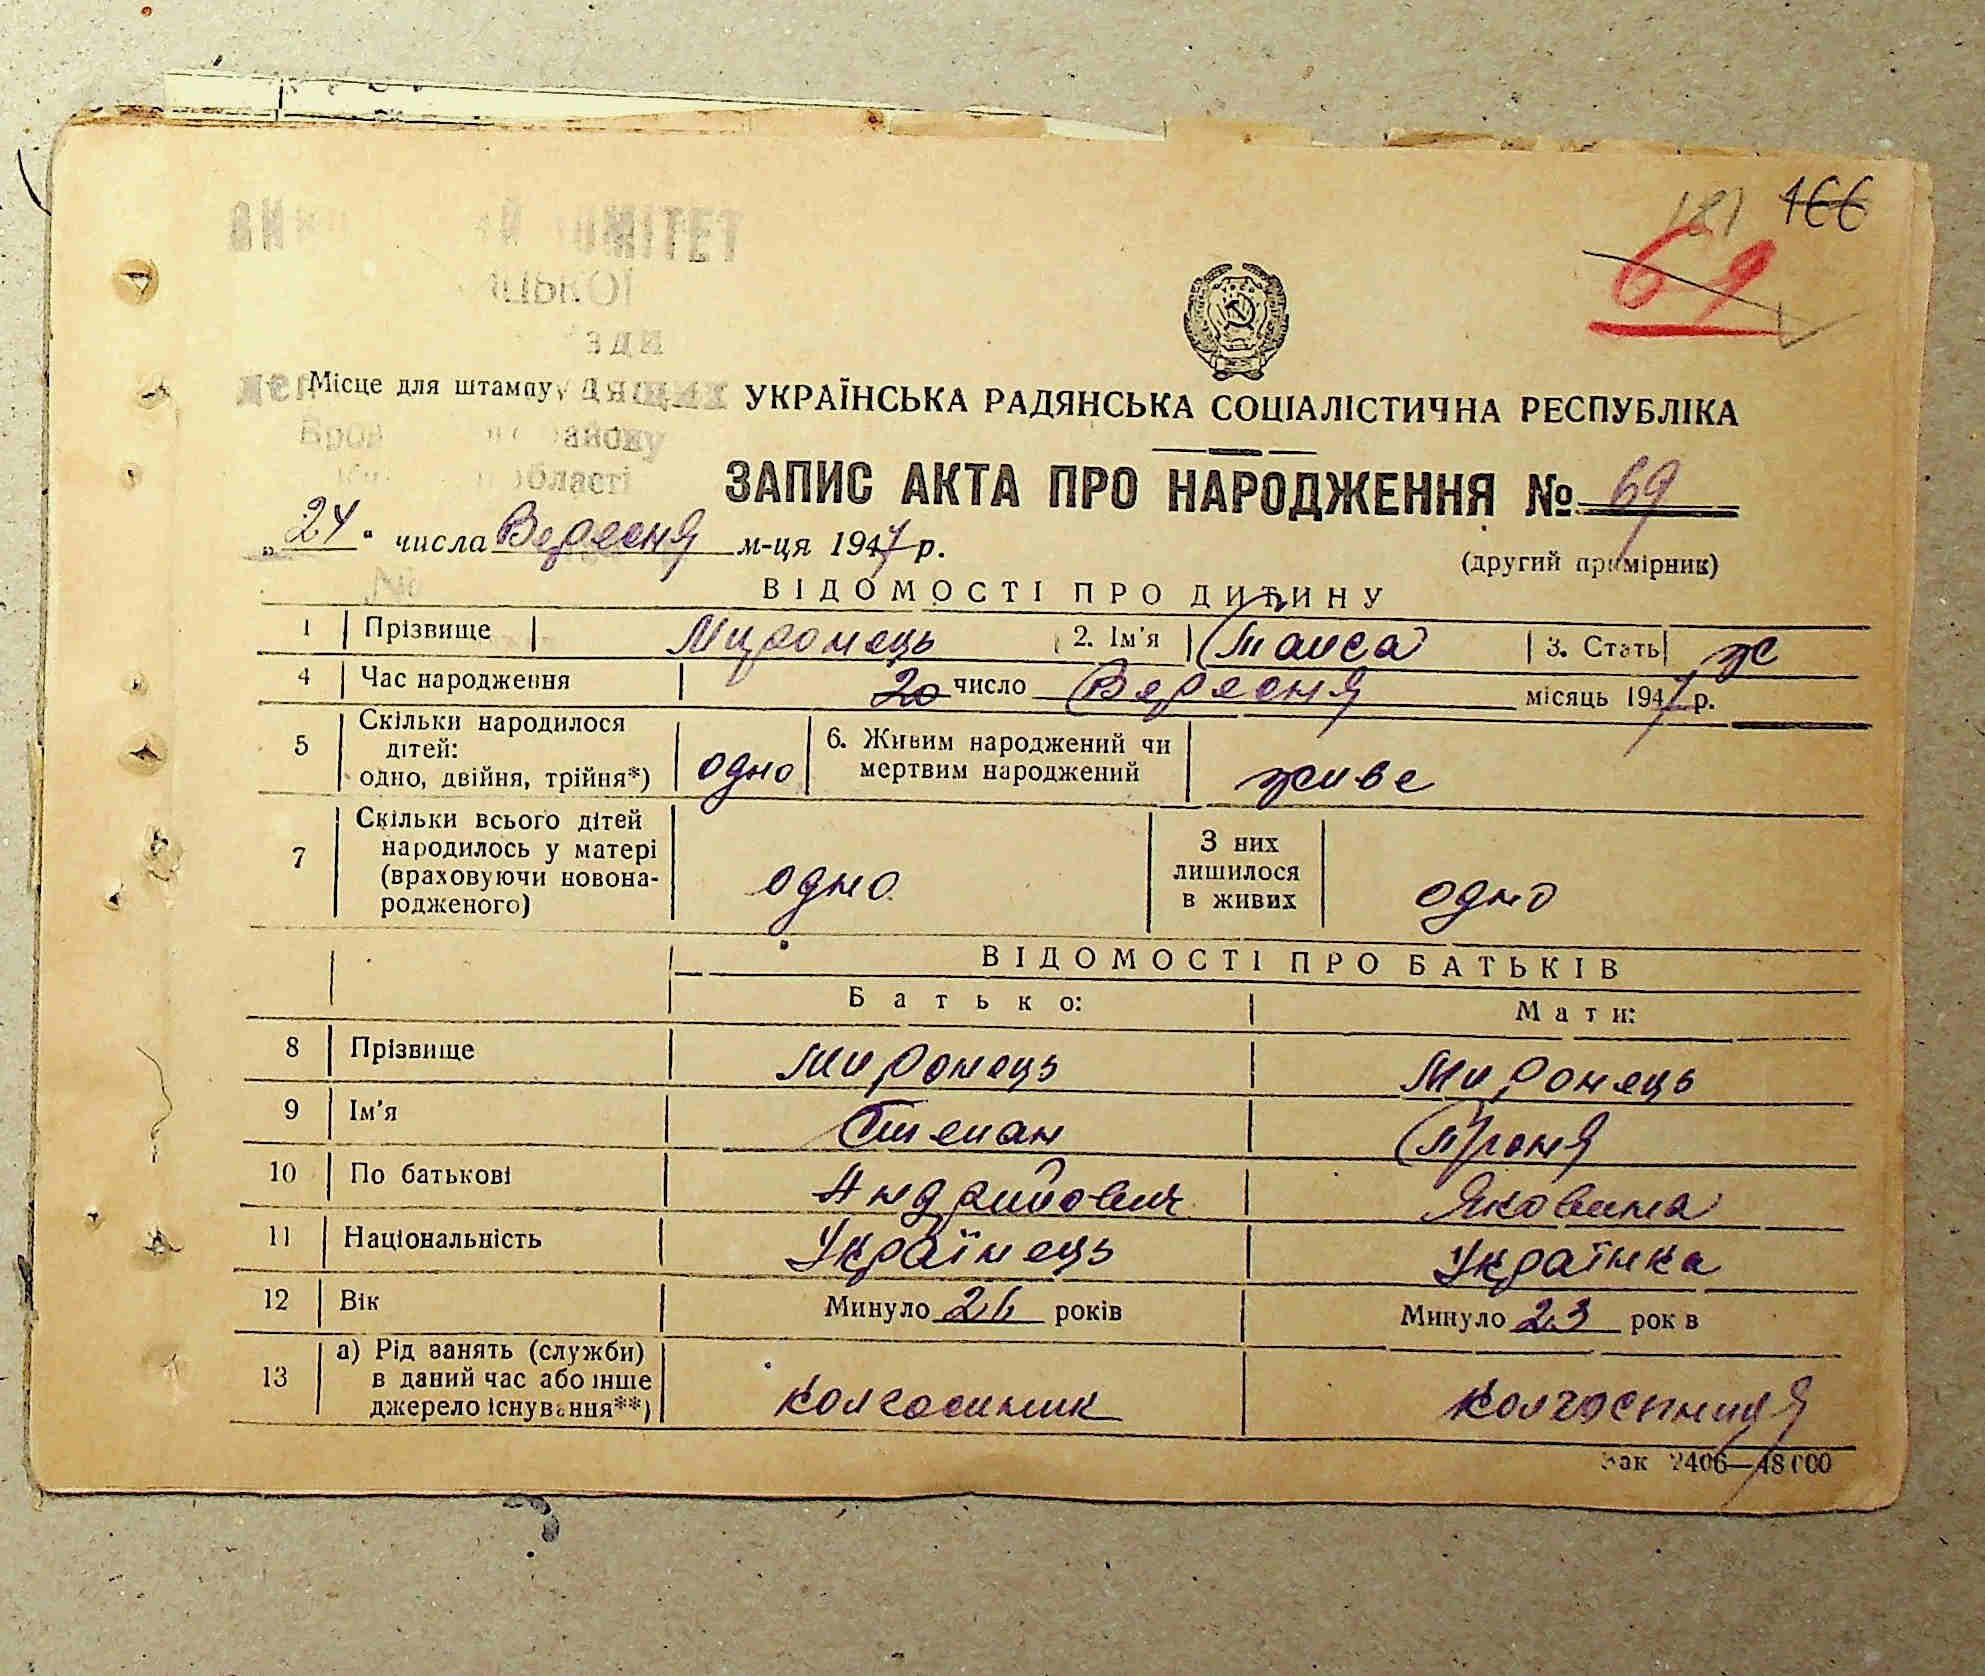 181 166
69
КОМІТЕТ
Місце для штампу
УКРАЇНСЬКА РАДЯНСЬКА СОЦІАЛІСТИЧНА РЕСПУБЛІКА
області
ЗАПИС АКТА ПРО НАРОДЖЕННЯ № 69
„24“ числа Вересня м-ця 1947 р.
(другий примірник)
ВІДОМОСТІ ПРО ДИТИНУ
1 Прізвище Миронець 2. Ім'я Таиса 3. Стать ж
4 Час народження 20 число Вересня місяць 1947 р.
5 Скільки народилося дітей: одно, двійня, трійня*) одно 6. Живим народжений чи мертвим народжений живе
7 Скільки всього дітей народилось у матері (враховуючи новонародженого) одно З них лишилося в живих одно
ВІДОМОСТІ ПРО БАТЬКІВ
Батько: Мати:
8 Прізвище Миронець Миронець
9 Ім'я Степан Проня
10 По батькові Андрийович Яковина
11 Національність Українець Українка
12 Вік Минуло 26 років Минуло 23 років
13 а) Рід занять (служби) в даний час або інше джерело існування**) колгоспник колгоспниця
Зак 2406—48000